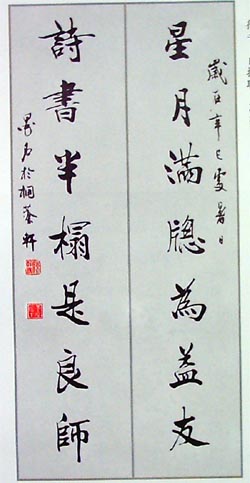 歲在辛巳處暑日
星月滿牕為益友
詩書半榻是良師
於桐蔭軒